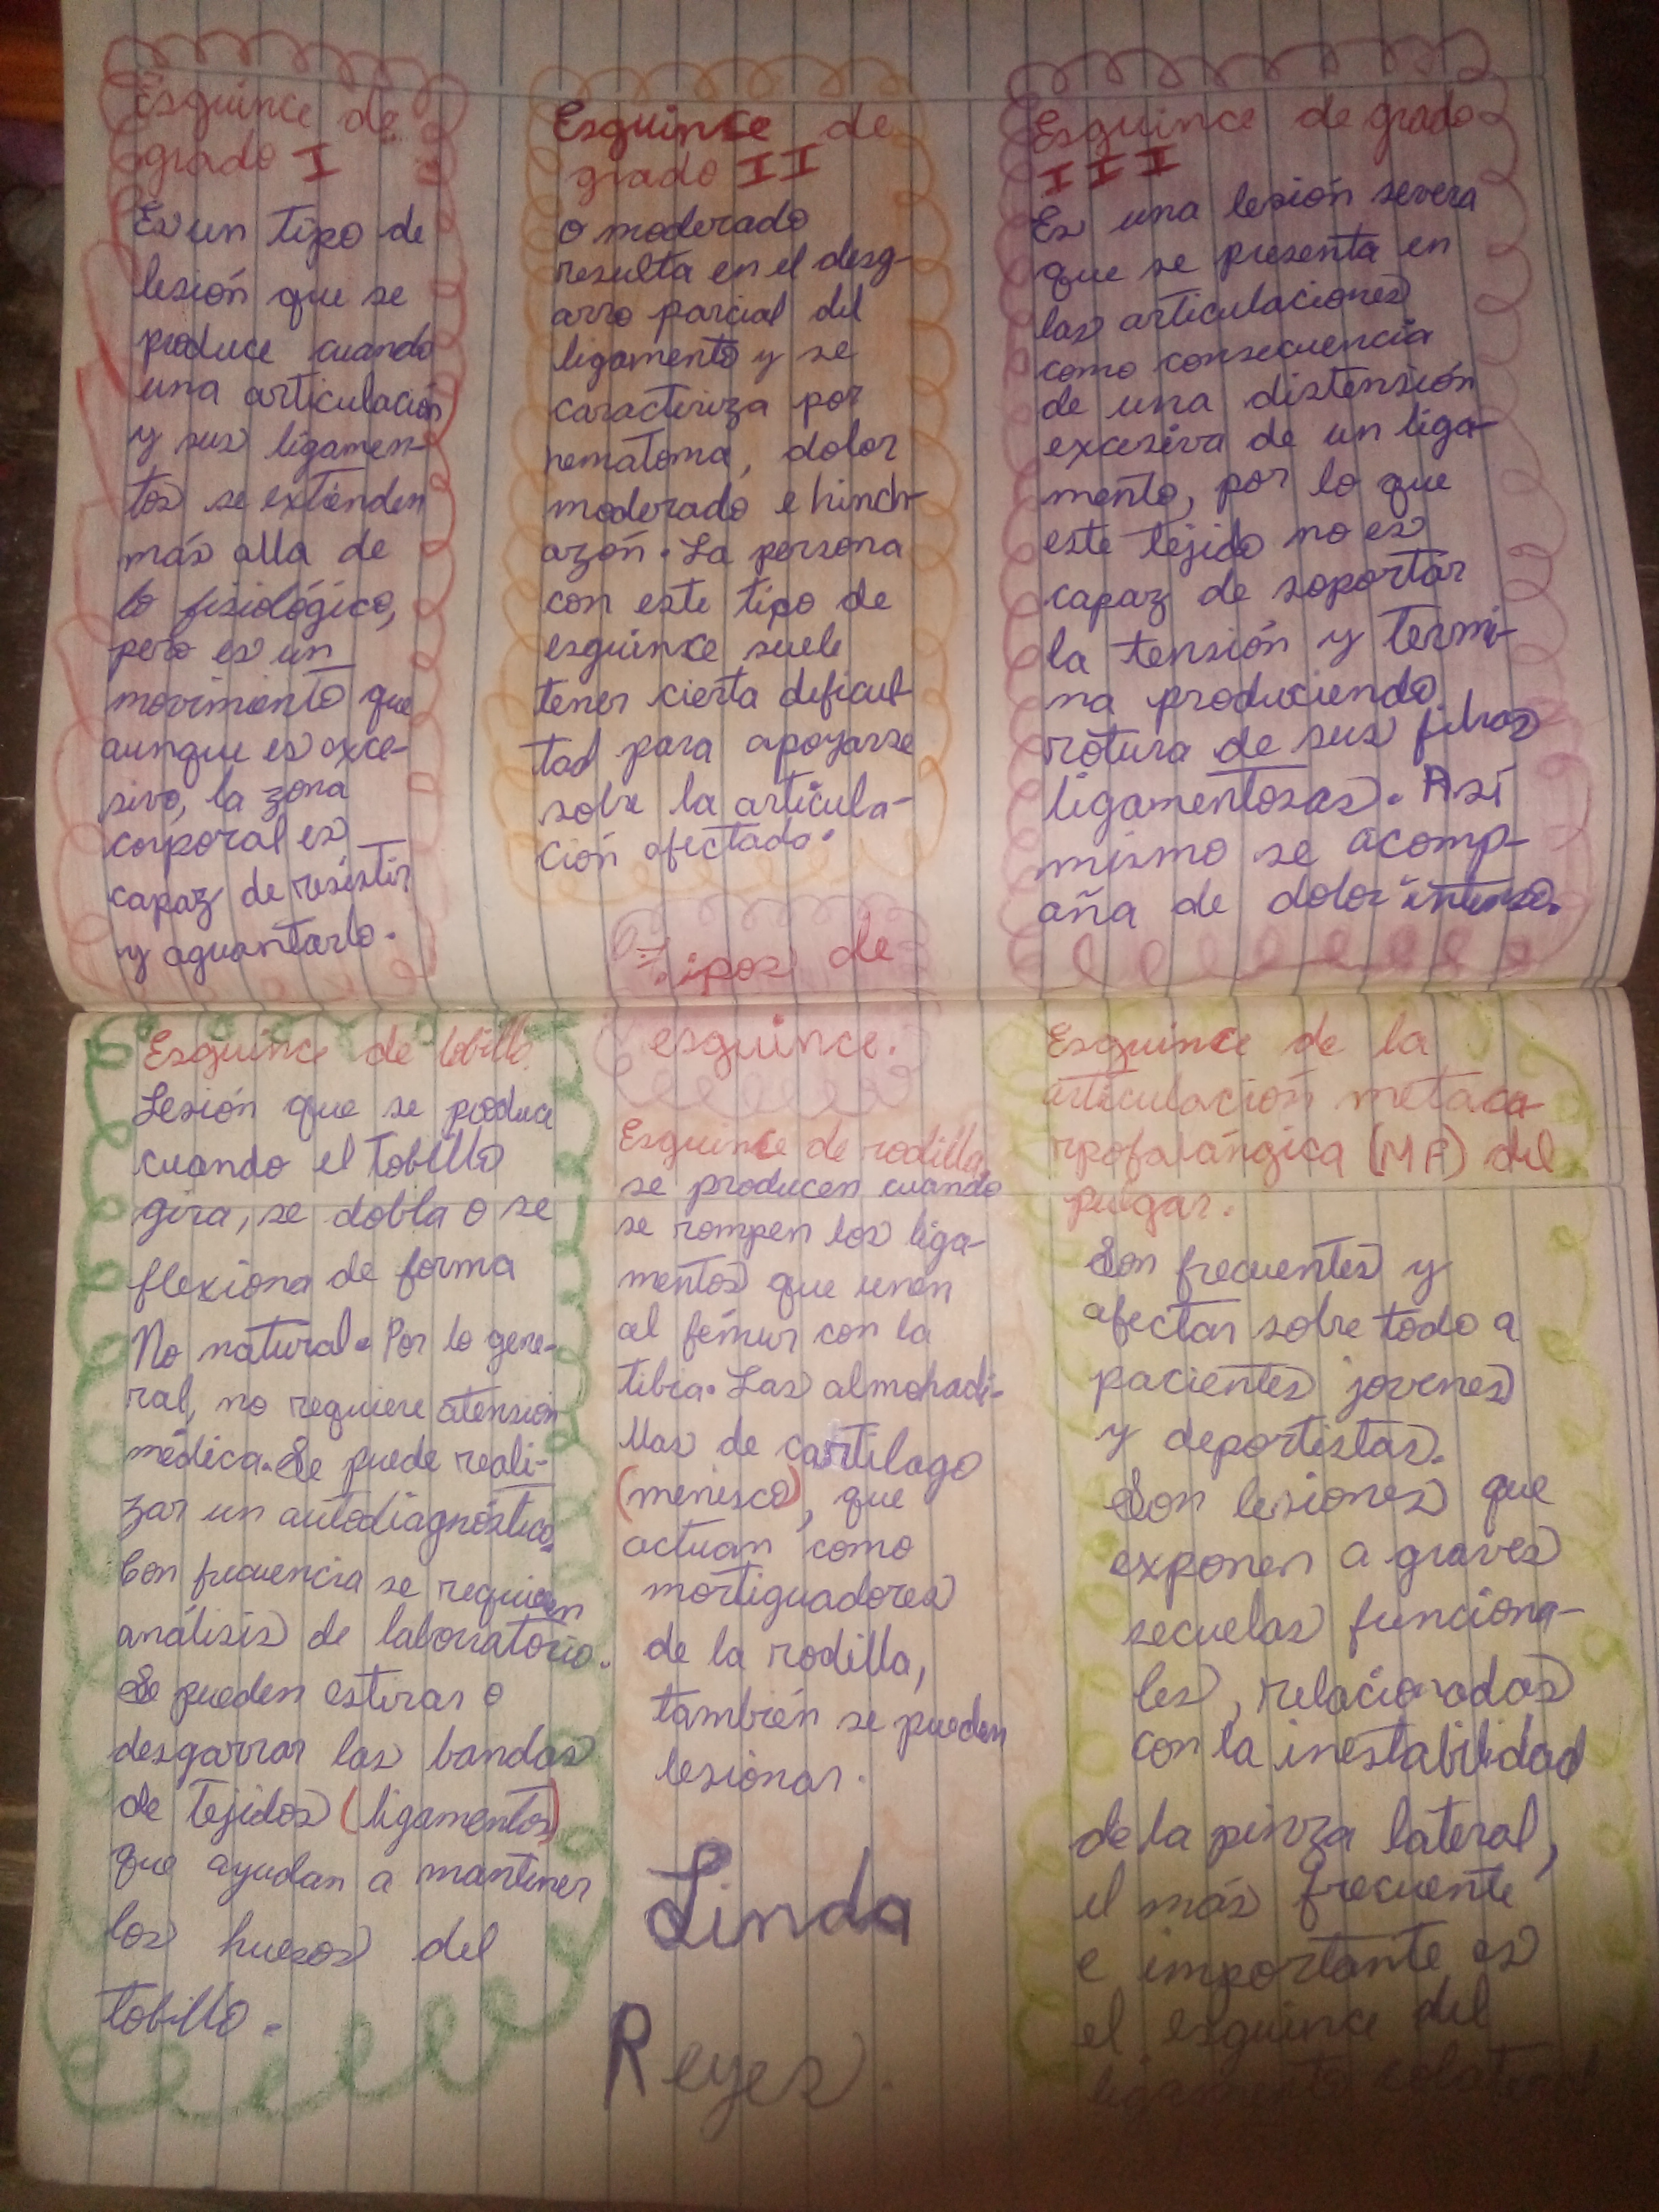 Esguince de
grado I
Es un tipo de
lesión que se
produce cuando
una articulación
y sus ligamen-
tos se extienden
más alla de
lo fisiológico,
pero es un
movimiento que
aunque es exce-
sivo, la zona
corporal es
capaz de resistir
y aguantarlo.
Esguince de
grado II
o moderado
resulta en el desg-
arro parcial del
ligamento y se
caracteriza por
hematoma, dolor
moderado e hinch-
azón. La persona
con este tipo de
esguince suele
tener cierta deficul-
tad para apoyarse
sobre la articula-
ción afectada.
Esguince de grado
III
Es una lesión severa
que se presenta en
las articulaciones
como consecuencia
de una distensión
excesiva de un liga-
mento, por lo que
este tejido no es
capaz de soportar
la tensión y termi-
na produciendo
rotura de sus fibras
ligamentosas. Así
mismo se acomp-
aña de dolor intenso.
Tipos de
esguince.
Esguince de tobillo.
Lesión que se produce
cuando el tobillo
gira, se dobla o se
flexiona de forma
No natural. Por lo gene-
ral, no requiere atension
médica. Se puede reali-
zar un autodiagnóstico.
Con frecuencia se requieren
análisis de laborratorio.
Se pueden estirar o
desgarrar las bandas
de tejidos (ligamentos)
que ayudan a mantener
los huesos del
tobillo.
Esguince de rodilla.
se producen cuando
se rompen los liga-
mentos que unen
al fémur con la
tibia. Las almohadi-
llas de cartilago
(menisco), que
actuan como
mortiguadores
de la rodilla,
también se pueden
lesionar.
Linda
Reyes.
Esguince de la
articulación metaca
rpofalángica (MF) del
pulgar.
Son frecuentes y
afectan sobre todo a
pacientes jovenes
y deportistas.
Son lesiones que
exponen a graves
secuelas funciona-
les, relacionadas
con la inestabilidad
de la pinza lateral,
el más frecuente
e importante es
el esguince del
ligamento colateral